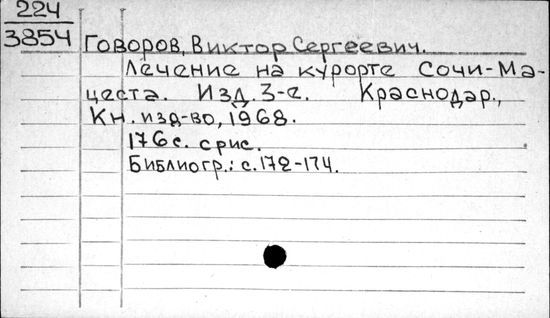 224
3854
Говоров, Виктор Сергеевич.
Лечение на курорте Сочи-Ма-
цеста. Изд. 3-е. Краснодар.,
Кн. изд-во, 1968.
176 с. с рис.
Библиогр.: с. 172-174.